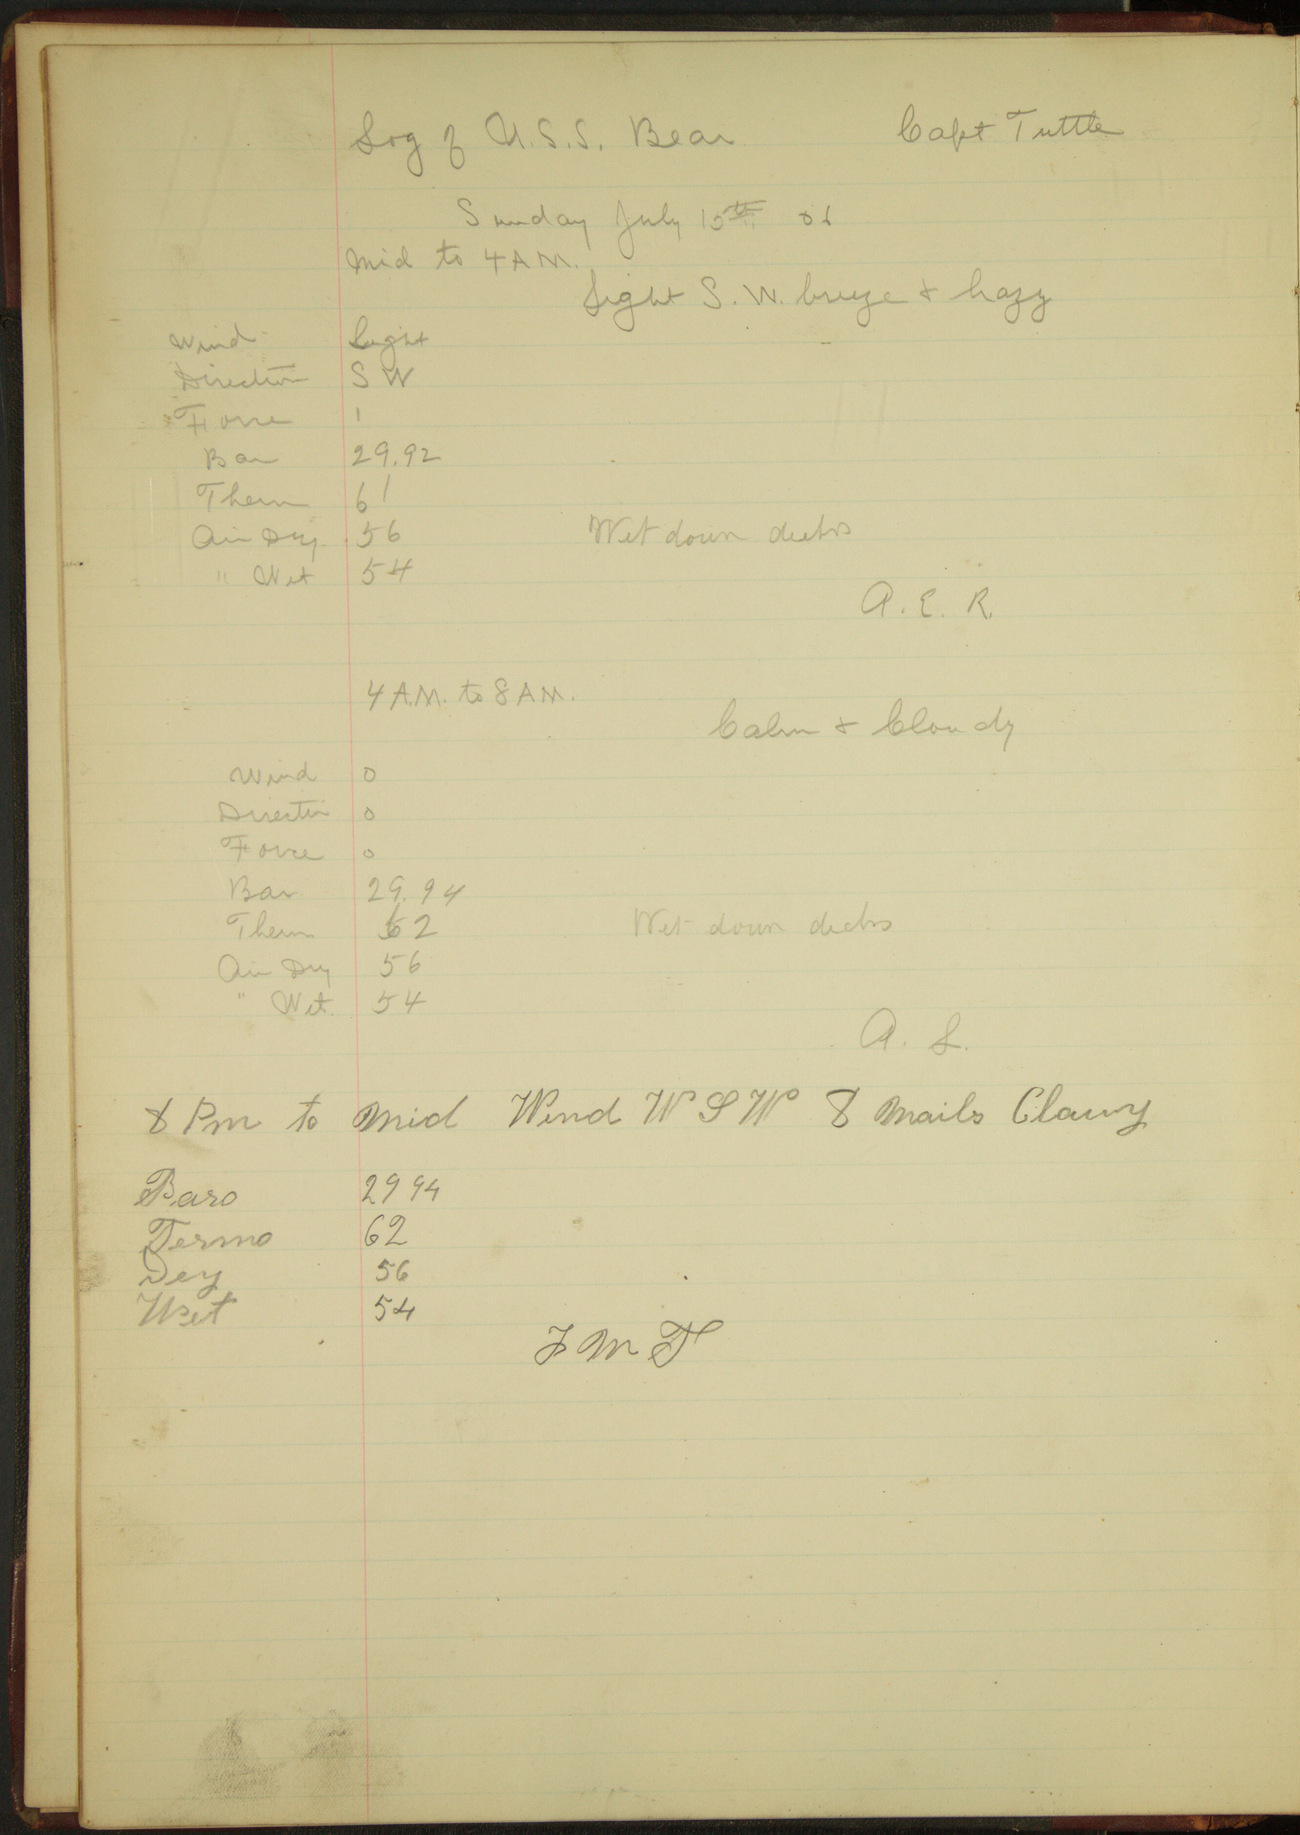 Log of U.S.S. Bear Capt Tuttle
Sunday July 15th 06
Mid to 4 A M.
Light S. W. breeze & hazy
Wind Light
Direction S W
Force 1
Bar 29.92
Therm 61
Air Dry 56 Wet down decks
" Wet 54
A. E. R.
4 A.M. to 8 A M.
Calm & Cloudy
Wind 0
Direction 0
Force 0
Bar 29.94
Therm 62 Wet down decks
Air Dry 56
" Wet. 54
A. L.
8 Pm to Mid Wind W S W 8 Mails Clauy
Baro 29 94
Termo 62
Dey 56
Wet 54
F M T